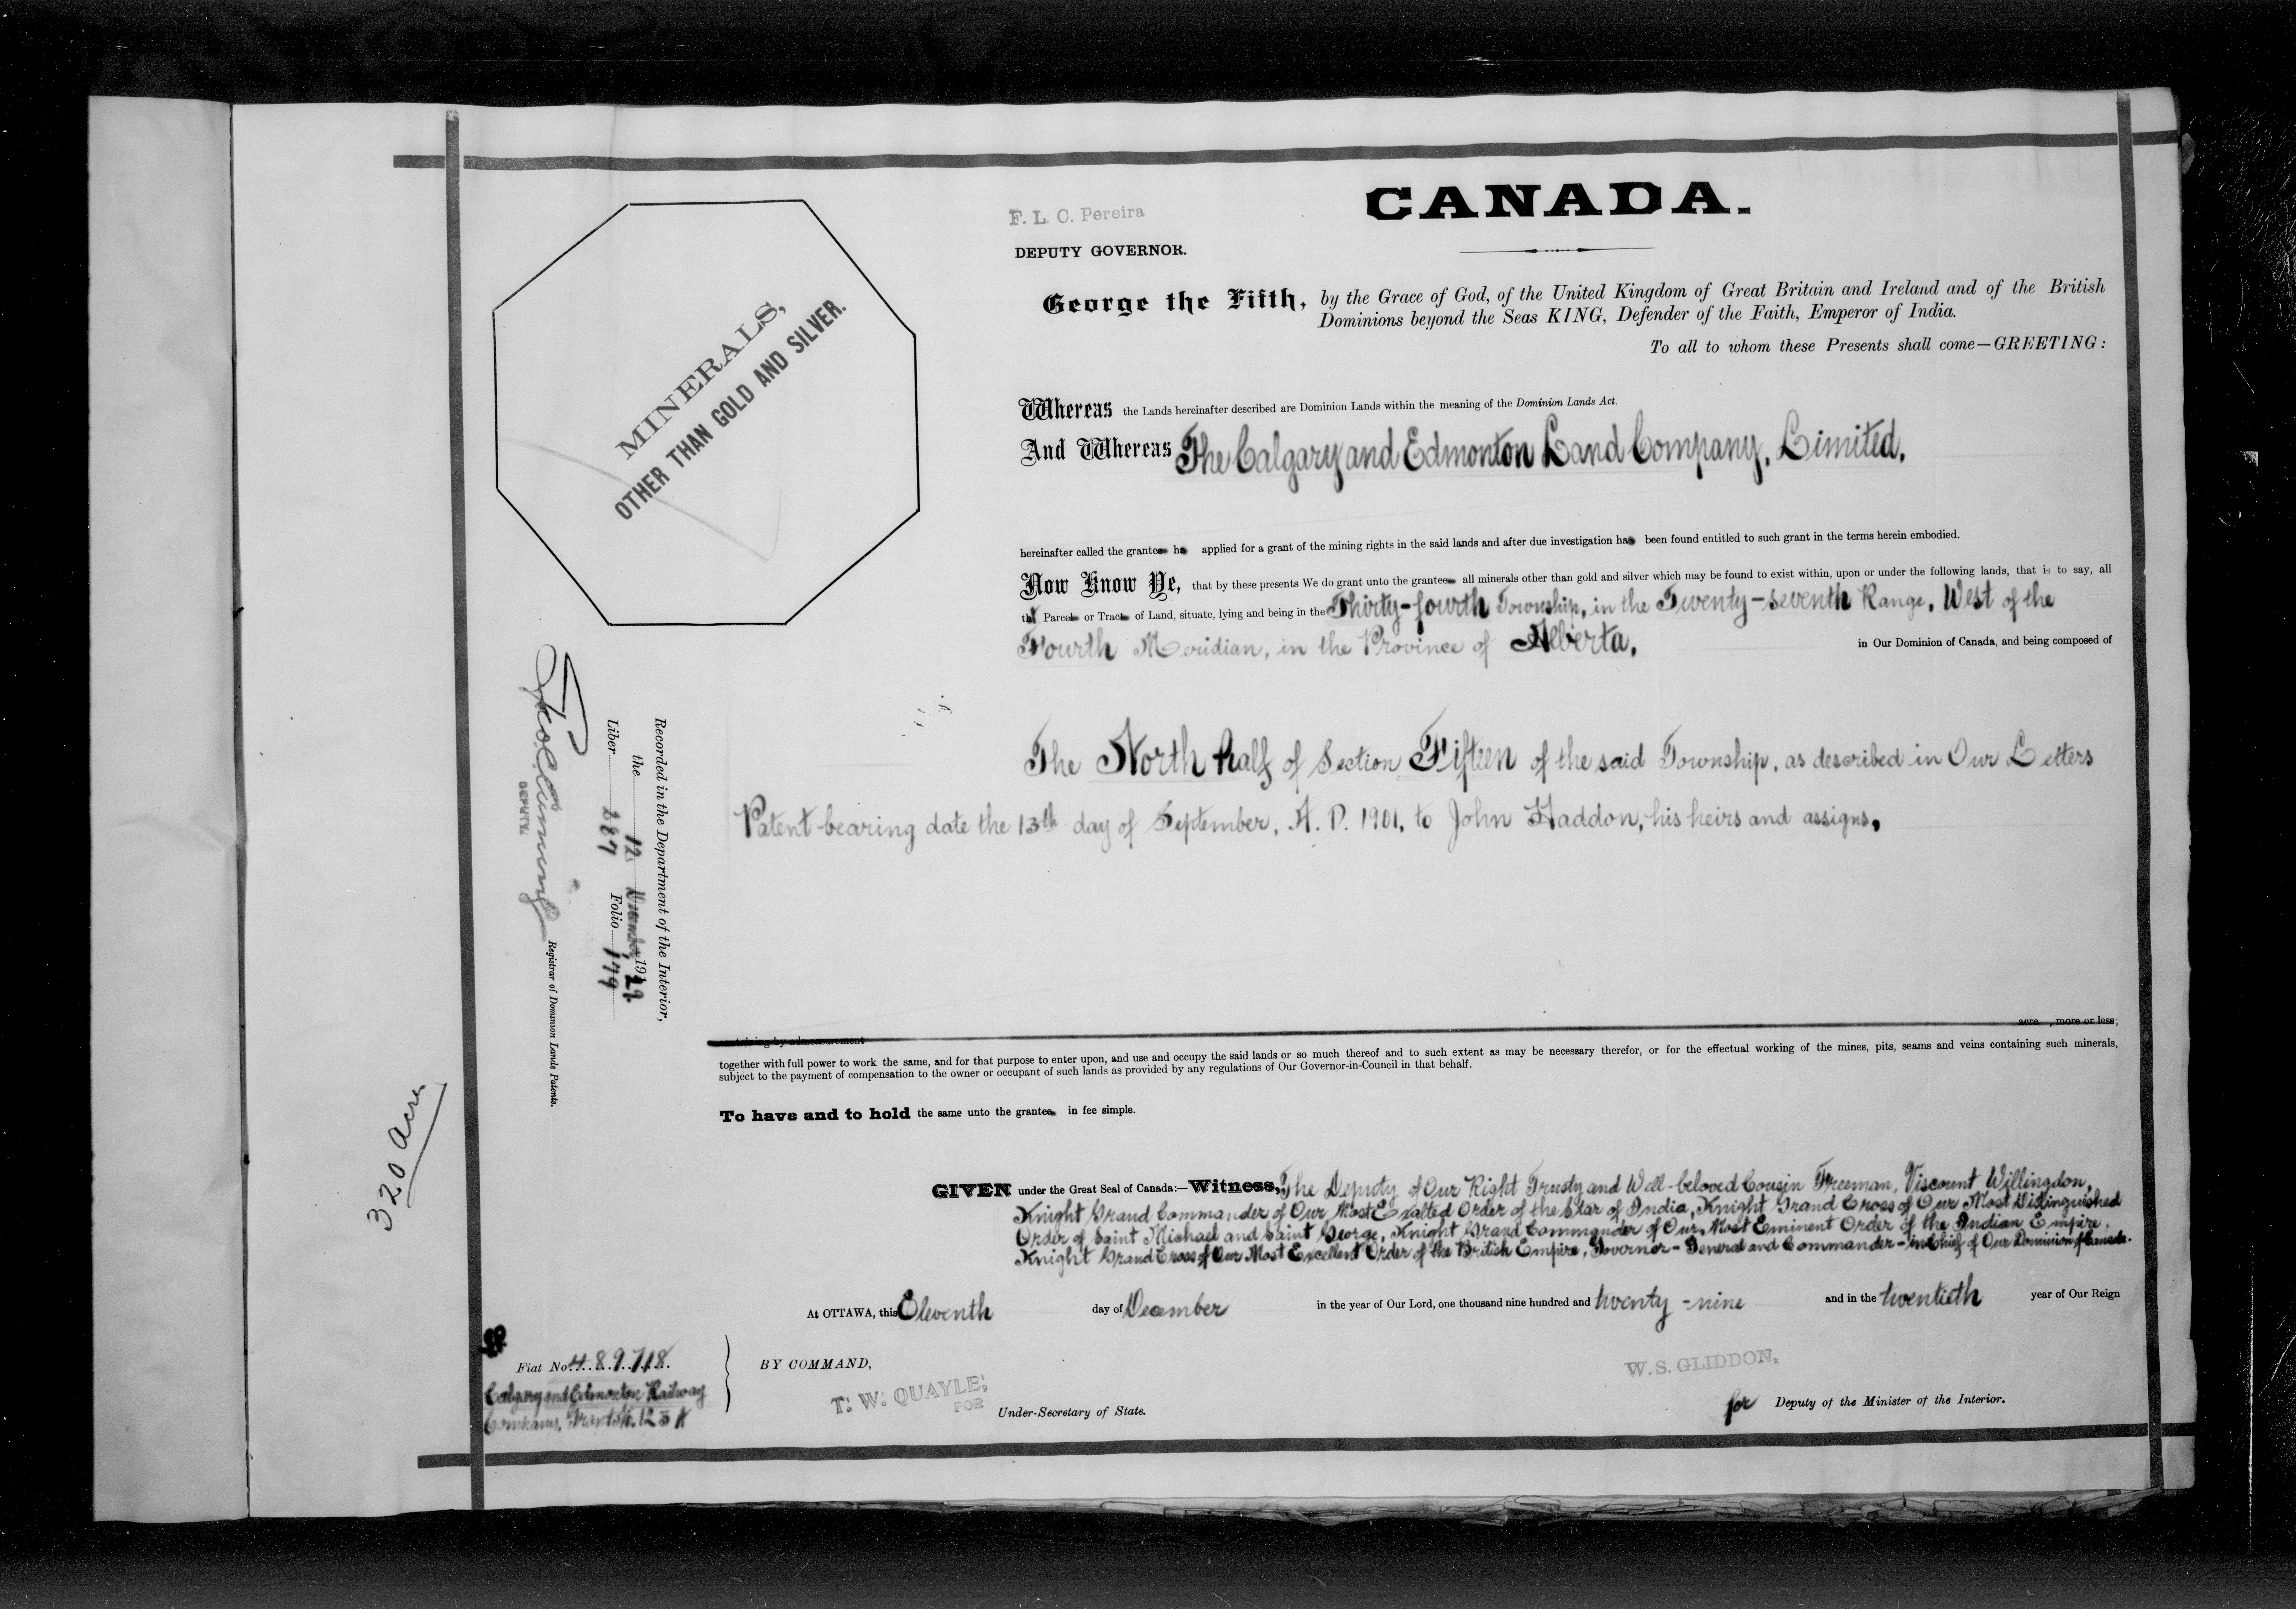 CANADA.
F. L. C. Pereira
DEPUTY GOVERNOR.
George the Fifth, by the Grace of God, of the United Kingdom of Great Britain and Ireland and of the British
Dominions beyond the Seas KING, Defender of the Faith, Emperor of India.
To all to whom these Presents shall come—GREETING:
MINERALS,
OTHER THAN GOLD AND SILVER.
Whereas the Lands hereinafter described are Dominion Lands within the meaning of the Dominion Lands Act.
And Whereas The Calgary and Edmonton Land Company, Limited,
hereinafter called the grantee ha applied for a grant of the mining rights in the said lands and after due investigation has been found entitled to such grant in the terms herein embodied.
Now Know Ye, that by these presents We do grant unto the grantee all minerals other than gold and silver which may be found to exist within, upon or under the following lands, that is to say, all
that Parcel or Tract of Land, situate, lying and being in the Thirty-fourth Township, in the Twenty-seventh Range, West of the
Fourth Meridian, in the Province of Alberta, in Our Dominion of Canada, and being composed of
The North half of Section Fifteen of the said Township, as described in Our Letters
Patent bearing date the 13th day of September, A. D. 1901, to John Haddon, his heirs and assigns,
containing by admeasurement acre , more or less;
together with full power to work the same, and for that purpose to enter upon, and use and occupy the said lands or so much thereof and to such extent as may be necessary therefor, or for the effectual working of the mines, pits, seams and veins containing such minerals,
subject to the payment of compensation to the owner or occupant of such lands as provided by any regulations of Our Governor-in-Council in that behalf.
To have and to hold the same unto the grantee in fee simple.
GIVEN under the Great Seal of Canada:—Witness, The Deputy of Our Right Trusty and Well-beloved Cousin Freeman, Viscount Willingdon,
Knight Grand Commander of Our Most Exalted Order of the Star of India, Knight Grand Cross of Our Most Distinguished
Order of Saint Michael and Saint George, Knight Grand Commander of Our Most Eminent Order of the Indian Empire,
Knight Grand Cross of Our Most Excellent Order of the British Empire, Governor-General and Commander-in-Chief of Our Dominion of Canada.
At OTTAWA, this Eleventh day of December in the year of Our Lord, one thousand nine hundred and twenty-nine and in the twentieth year of Our Reign
BY COMMAND,
T. W. QUAYLE,
FOR
Under-Secretary of State.
W. S. GLIDDON,
for Deputy of the Minister of the Interior.
Fiat No. 489718
Calgary and Edmonton Railway
Company,
Recorded in the Department of the Interior,
the 12 December, 1929.
Liber 287 Folio 179
DEPUTY
Registrar of Dominion Lands Patents.
320 acre